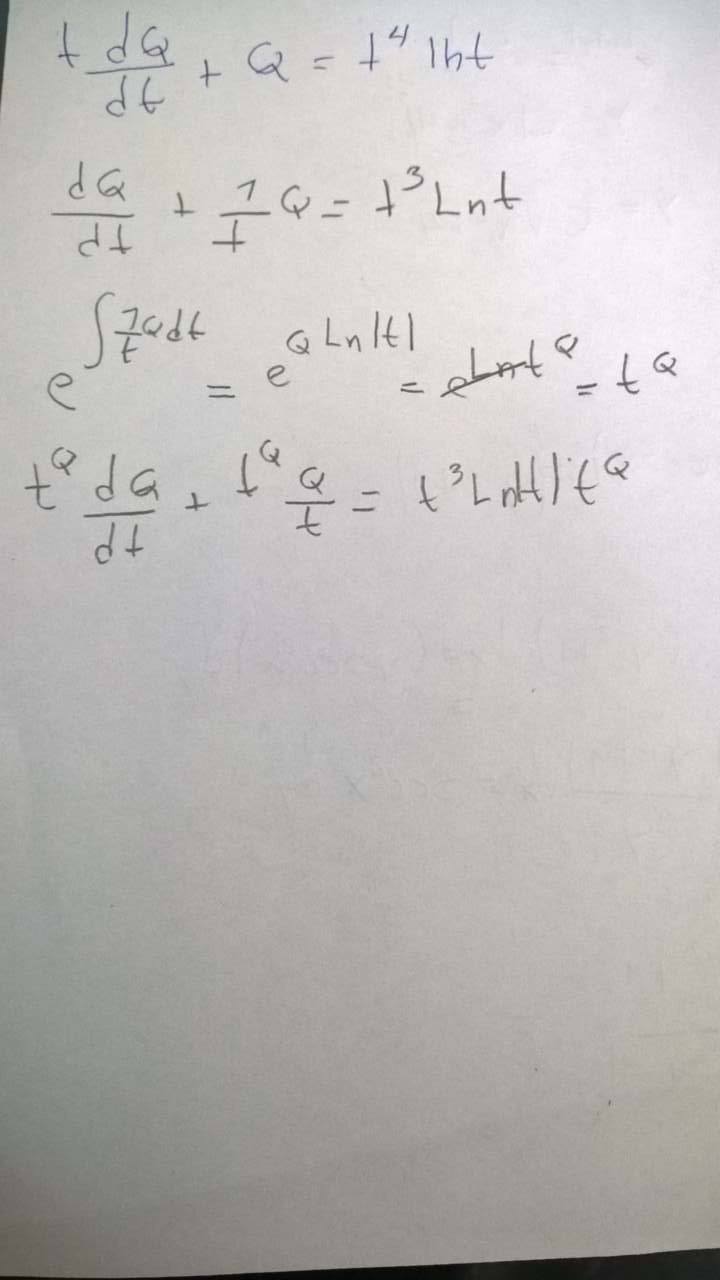 t dQ/dt + Q = t⁴ lnt
dQ/dt + 1/t Q = t³ Lnt
e^(∫ 1/t Q dt) = e^(Q Ln|t|) = e^(Ln t^Q) = t^Q
t^Q dQ/dt + t^Q Q/t = t³ Ln|t| · t^Q